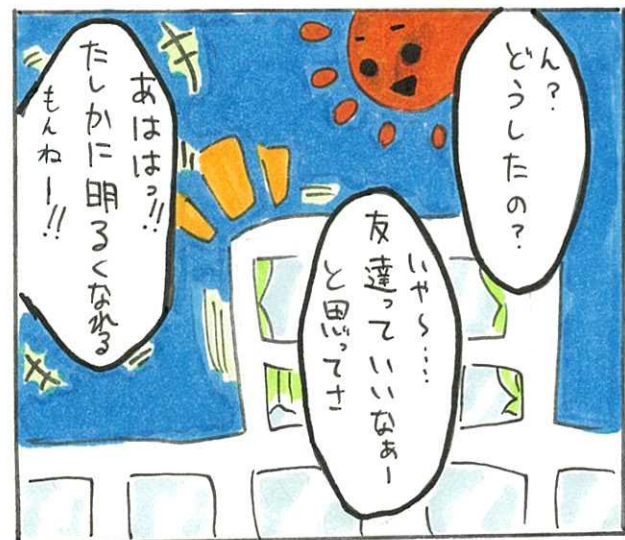 ん?
どうしたの?
いや〜……
友達っていいなぁー
と思ってさ
あははっ!!
たしかに明るくなれる
もんねー!!